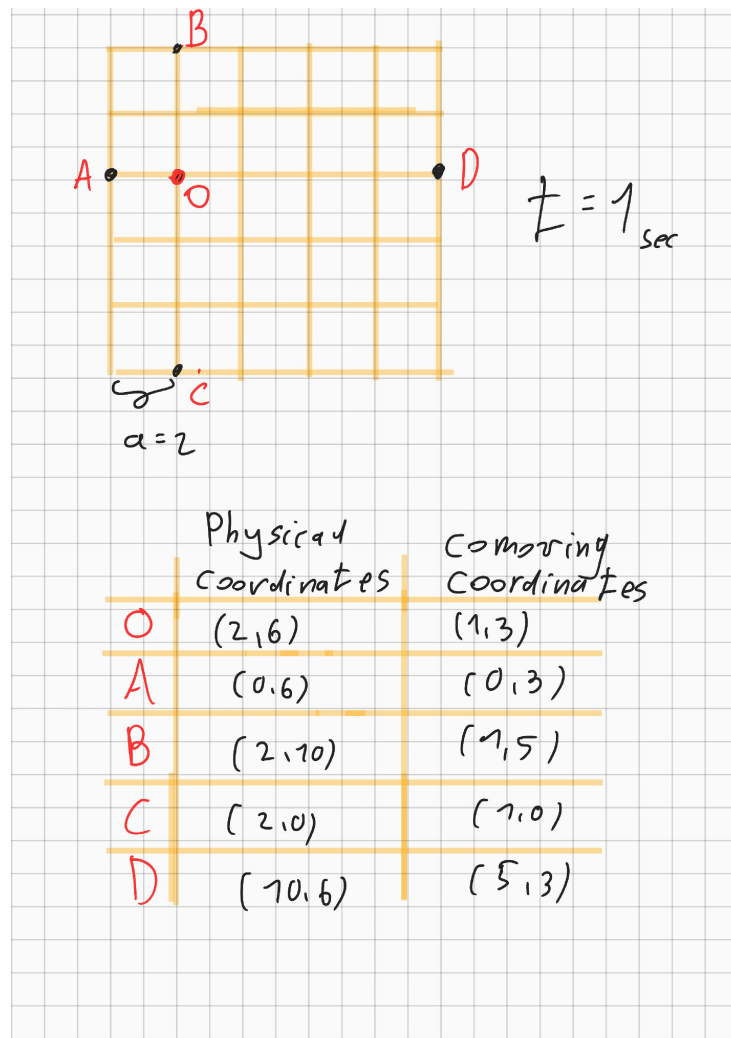 B
A
O
D
t = 1 sec
C
a = 2
Physical coordinates
Comoving Coordinates
O (2,6) (1,3)
A (0,6) (0,3)
B (2,10) (1,5)
C (2,0) (1,0)
D (10,6) (5,3)